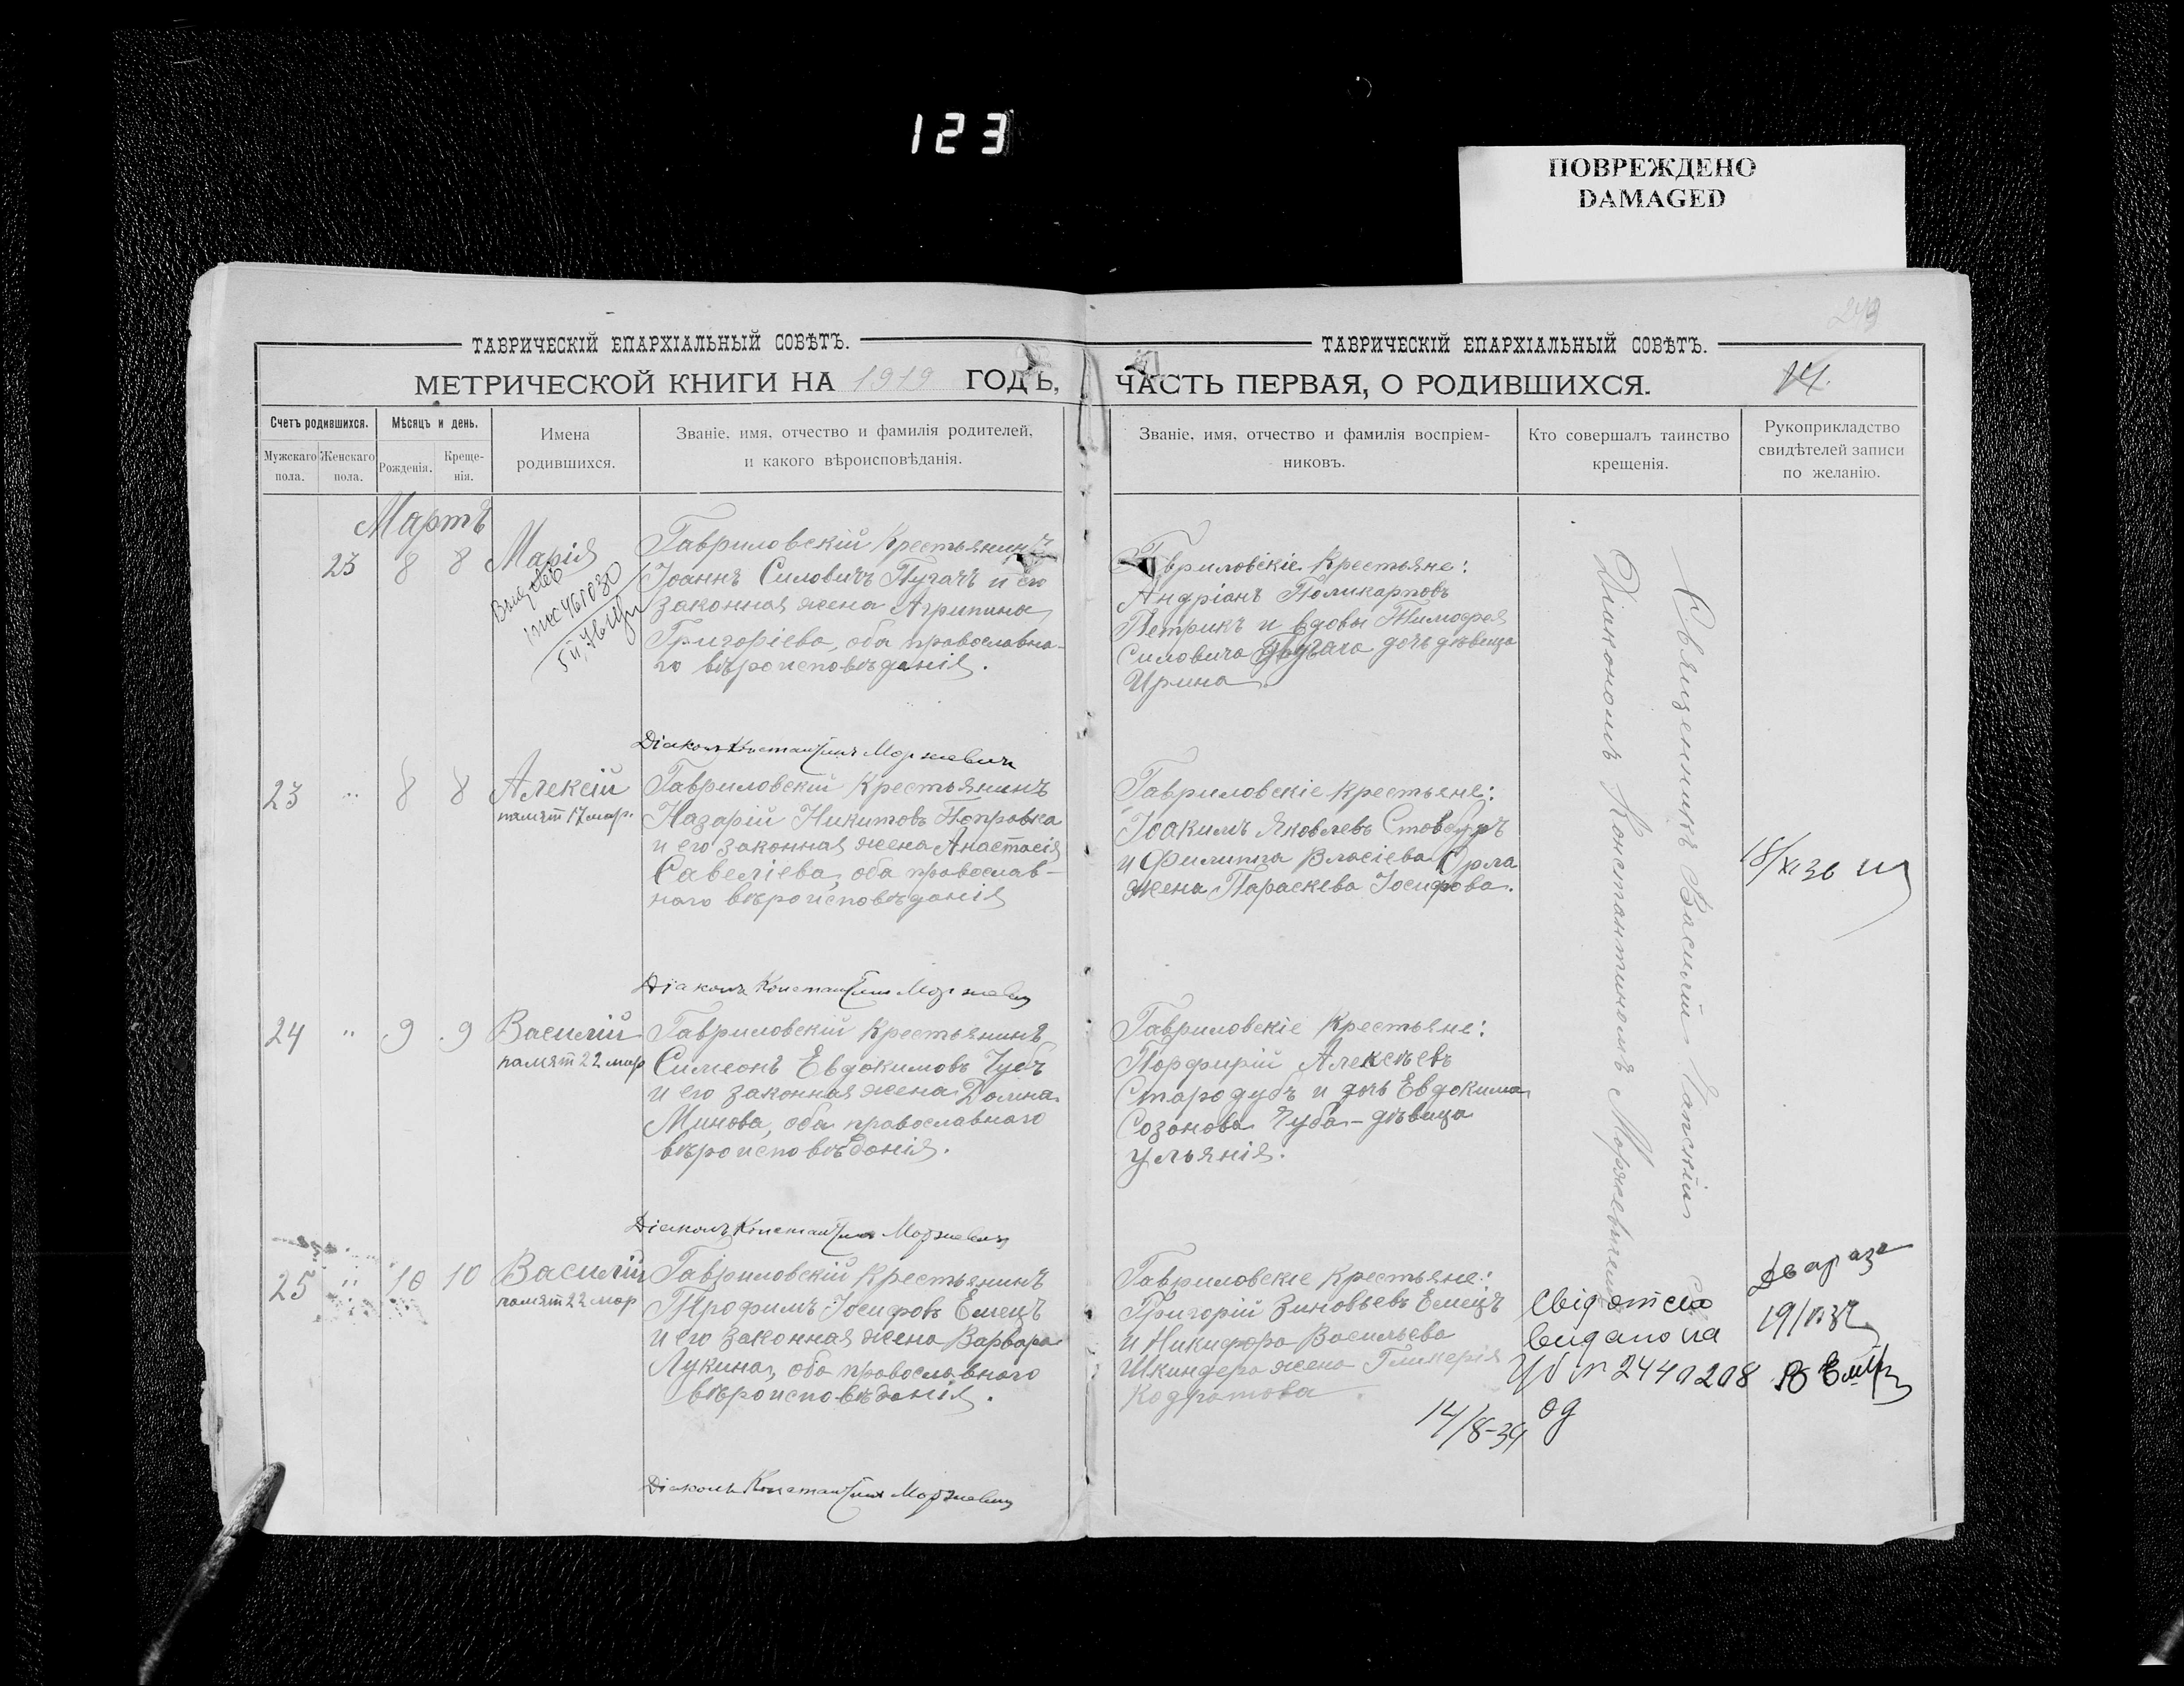 123
ПОВРЕЖДЕНО
DAMAGED
ТАВРИЧЕСКІЙ ЕПАРХІАЛЬНЫЙ СОВѢТЪ.
МЕТРИЧЕСКОЙ КНИГИ НА 1919 ГОДЪ,
Счетъ родившихся.
Мужскаго пола.
Женскаго пола.
Мѣсяцъ и день.
Рожденія.
Креще-
нія.
Имена
родившихся.
Званіе, имя, отчество и фамилія родителей,
и какого вѣроисповѣданія.
Мартъ
23 8 8 Марія
Гавриловскій Крестьянинъ
Іоаннъ Силовичъ Пугачъ и его
законная жена Агрипина
Григоріева, оба православна-
го вѣроисповѣданія.
Діаконъ Константинъ Моржевичъ
23 " 8 8 Алексій
памят 17 мар.
Гавриловскій Крестьянинъ
Назарій Никитовъ Поправка
и его законная жена Анастасія
Савеліева, оба православ-
наго вѣроисповѣданія
Діаконъ Константинъ Моржевич
24 " 9 9 Василій
памят 22 мар
Гавриловскій Крестьянинъ
Симеонъ Евдокимовъ Чубъ
и его законная жена Домна
Минова, оба православнаго
вѣроисповѣданія.
Діаконъ Константинъ Моржевич
25 " 10 10 Василій
памят 22 мар
Гавриловскій Крестьянинъ
Трофимъ Іосифовъ Емецъ
и его законная жена Варвара
Лукина, оба православнаго
вѣроисповѣданія.
Діаконъ Константинъ Моржевич
ТАВРИЧЕСКІЙ ЕПАРХІАЛЬНЫЙ СОВѢТЪ.
ЧАСТЬ ПЕРВАЯ, О РОДИВШИХСЯ.
14.
Званіе, имя, отчество и фамилія воспріем-
никовъ.
Кто совершалъ таинство
крещенія.
Рукоприкладство
свидѣтелей записи
по желанію.
Гавриловскіе Крестьяне:
Андріанъ Поликарповъ
Петрикъ и вдовы Тимофея
Силовича Пугача дочь дѣвица
Ирина
Гавриловскіе крестьяне:
Іоакимъ Яковлевъ Стовбуръ
и Филиппа Власіева Орла
жена Параскева Іосифова.
Гавриловскіе Крестьяне:
Порфирій Алексѣевъ
Стародубъ и дочь Евдокима
Созонова Чуба-дѣвица
Ульянія.
Гавриловскіе крестьяне:
Григорій Зиновьевъ Емецъ
и Никифора Васильева
Шкиндера жена Гликерія
Кодратова
14/8-34
Священникъ Василій
Діакономъ Константиномъ Моржевичемъ
18/XI 36
Свідотство
видано на
№ 2440208